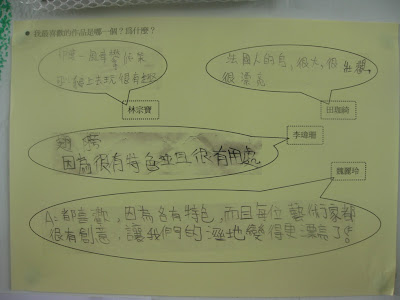 ●我最喜歡的作品是哪一個？為什麼？
可以爬上去玩很有趣
林宗寶
法國人的鳥,很大,很壯觀,
很漂亮
田珈綺
因為很有特色並且很有用處
李琦珊
A:都喜歡,因為各有特色,而且每位藝術家都
很有創意,讓我們的溼地變得更漂亮了!
魏麗玲